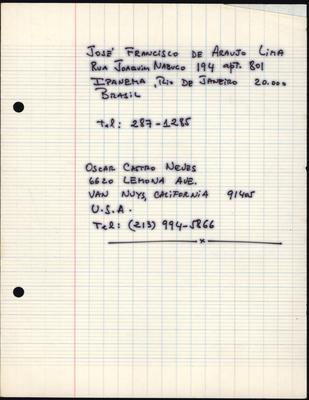 José Francisco de Araujo Lima
Rua Joaquim Nabuco 194 apt. 801
Ipanema, Rio de Janeiro 20.000
Brasil
Tel: 287-1285
Oscar Castro Neves
6620 Lemona Ave.
Van Nuys, California 91405
U.S.A.
Tel: (213) 994-5866